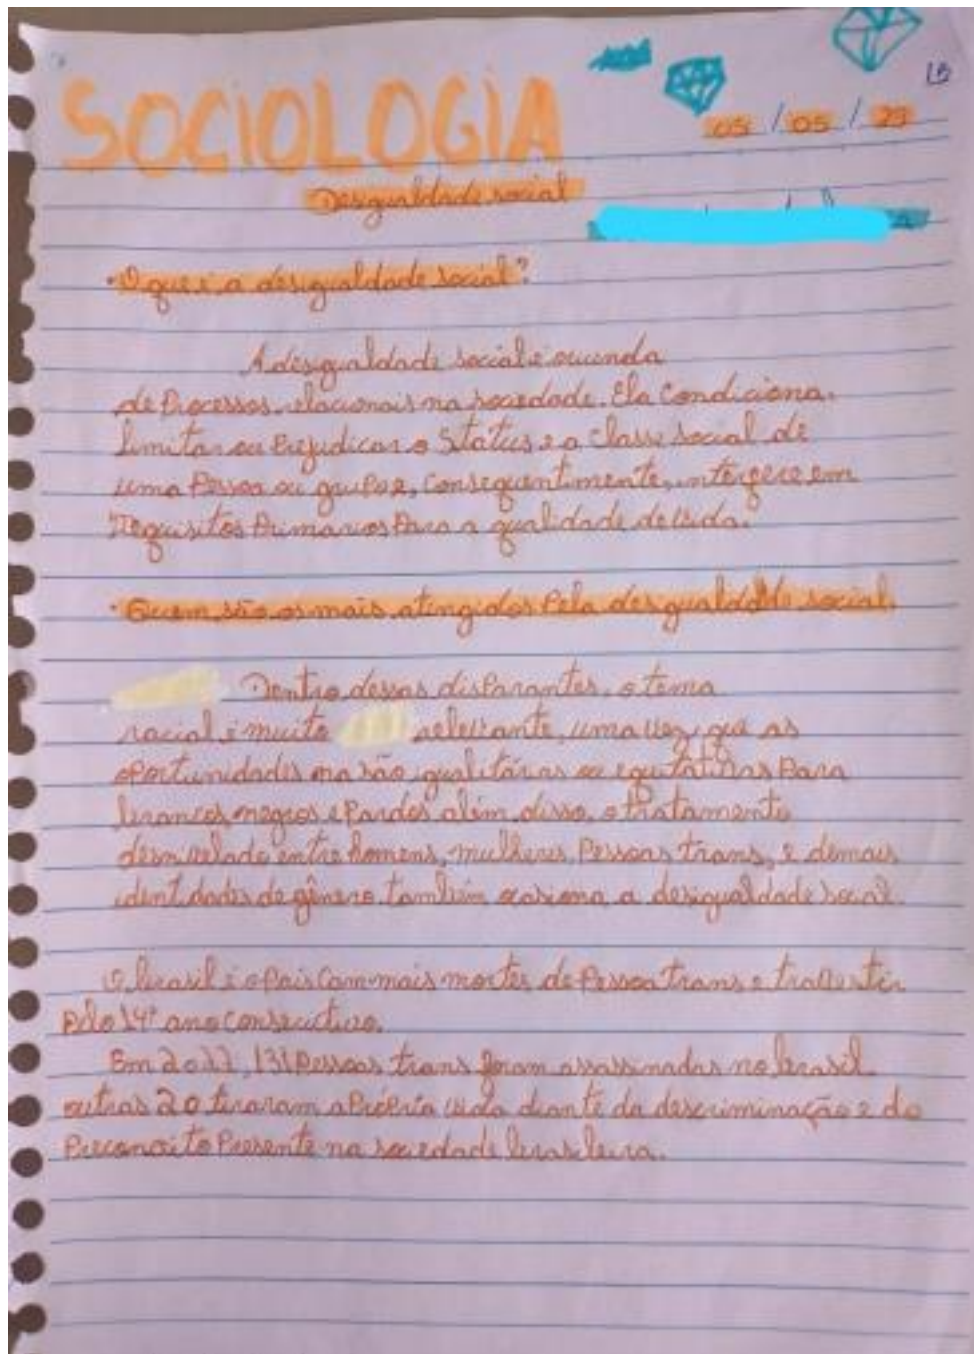 SOCIOLOGIA
05 / 05 / 23
Desigualdade social
• O que é a desigualdade social?
A desigualdade social é oriunda
de Processos relacionais na sociedade. Ela Condiciona,
limitar ou Prejudicar o Status e a Classe social de
uma Pessoa ou grupo e, Consequentimente, interfere em
requisitos Primarios Para a qualidade de vida.
• Quem são os mais atingidos Pela desigualdade social.
Dentro dessas disParantes, o tema
racial é muito relevante, uma vez, que as
oPortunidades na são igualitárias ou equitativas Para
brancos, negros e Pardos além disso, o tratamento
desnivelado entre homens, mulheres, Pessoas trans, e demais
identidades de gênero também ocasiona a desigualdade social.
O brasil é o País Com mais mortes de Pessoa trans e travestir
Pelo 14º ano Consecutivo.
Em 2022, 131 Pessoas trans foram assassinadas no brasil
outras 20 tiraram a Própria vida diante da descriminação e do
Preconceito Presente na sociedade brasileira.